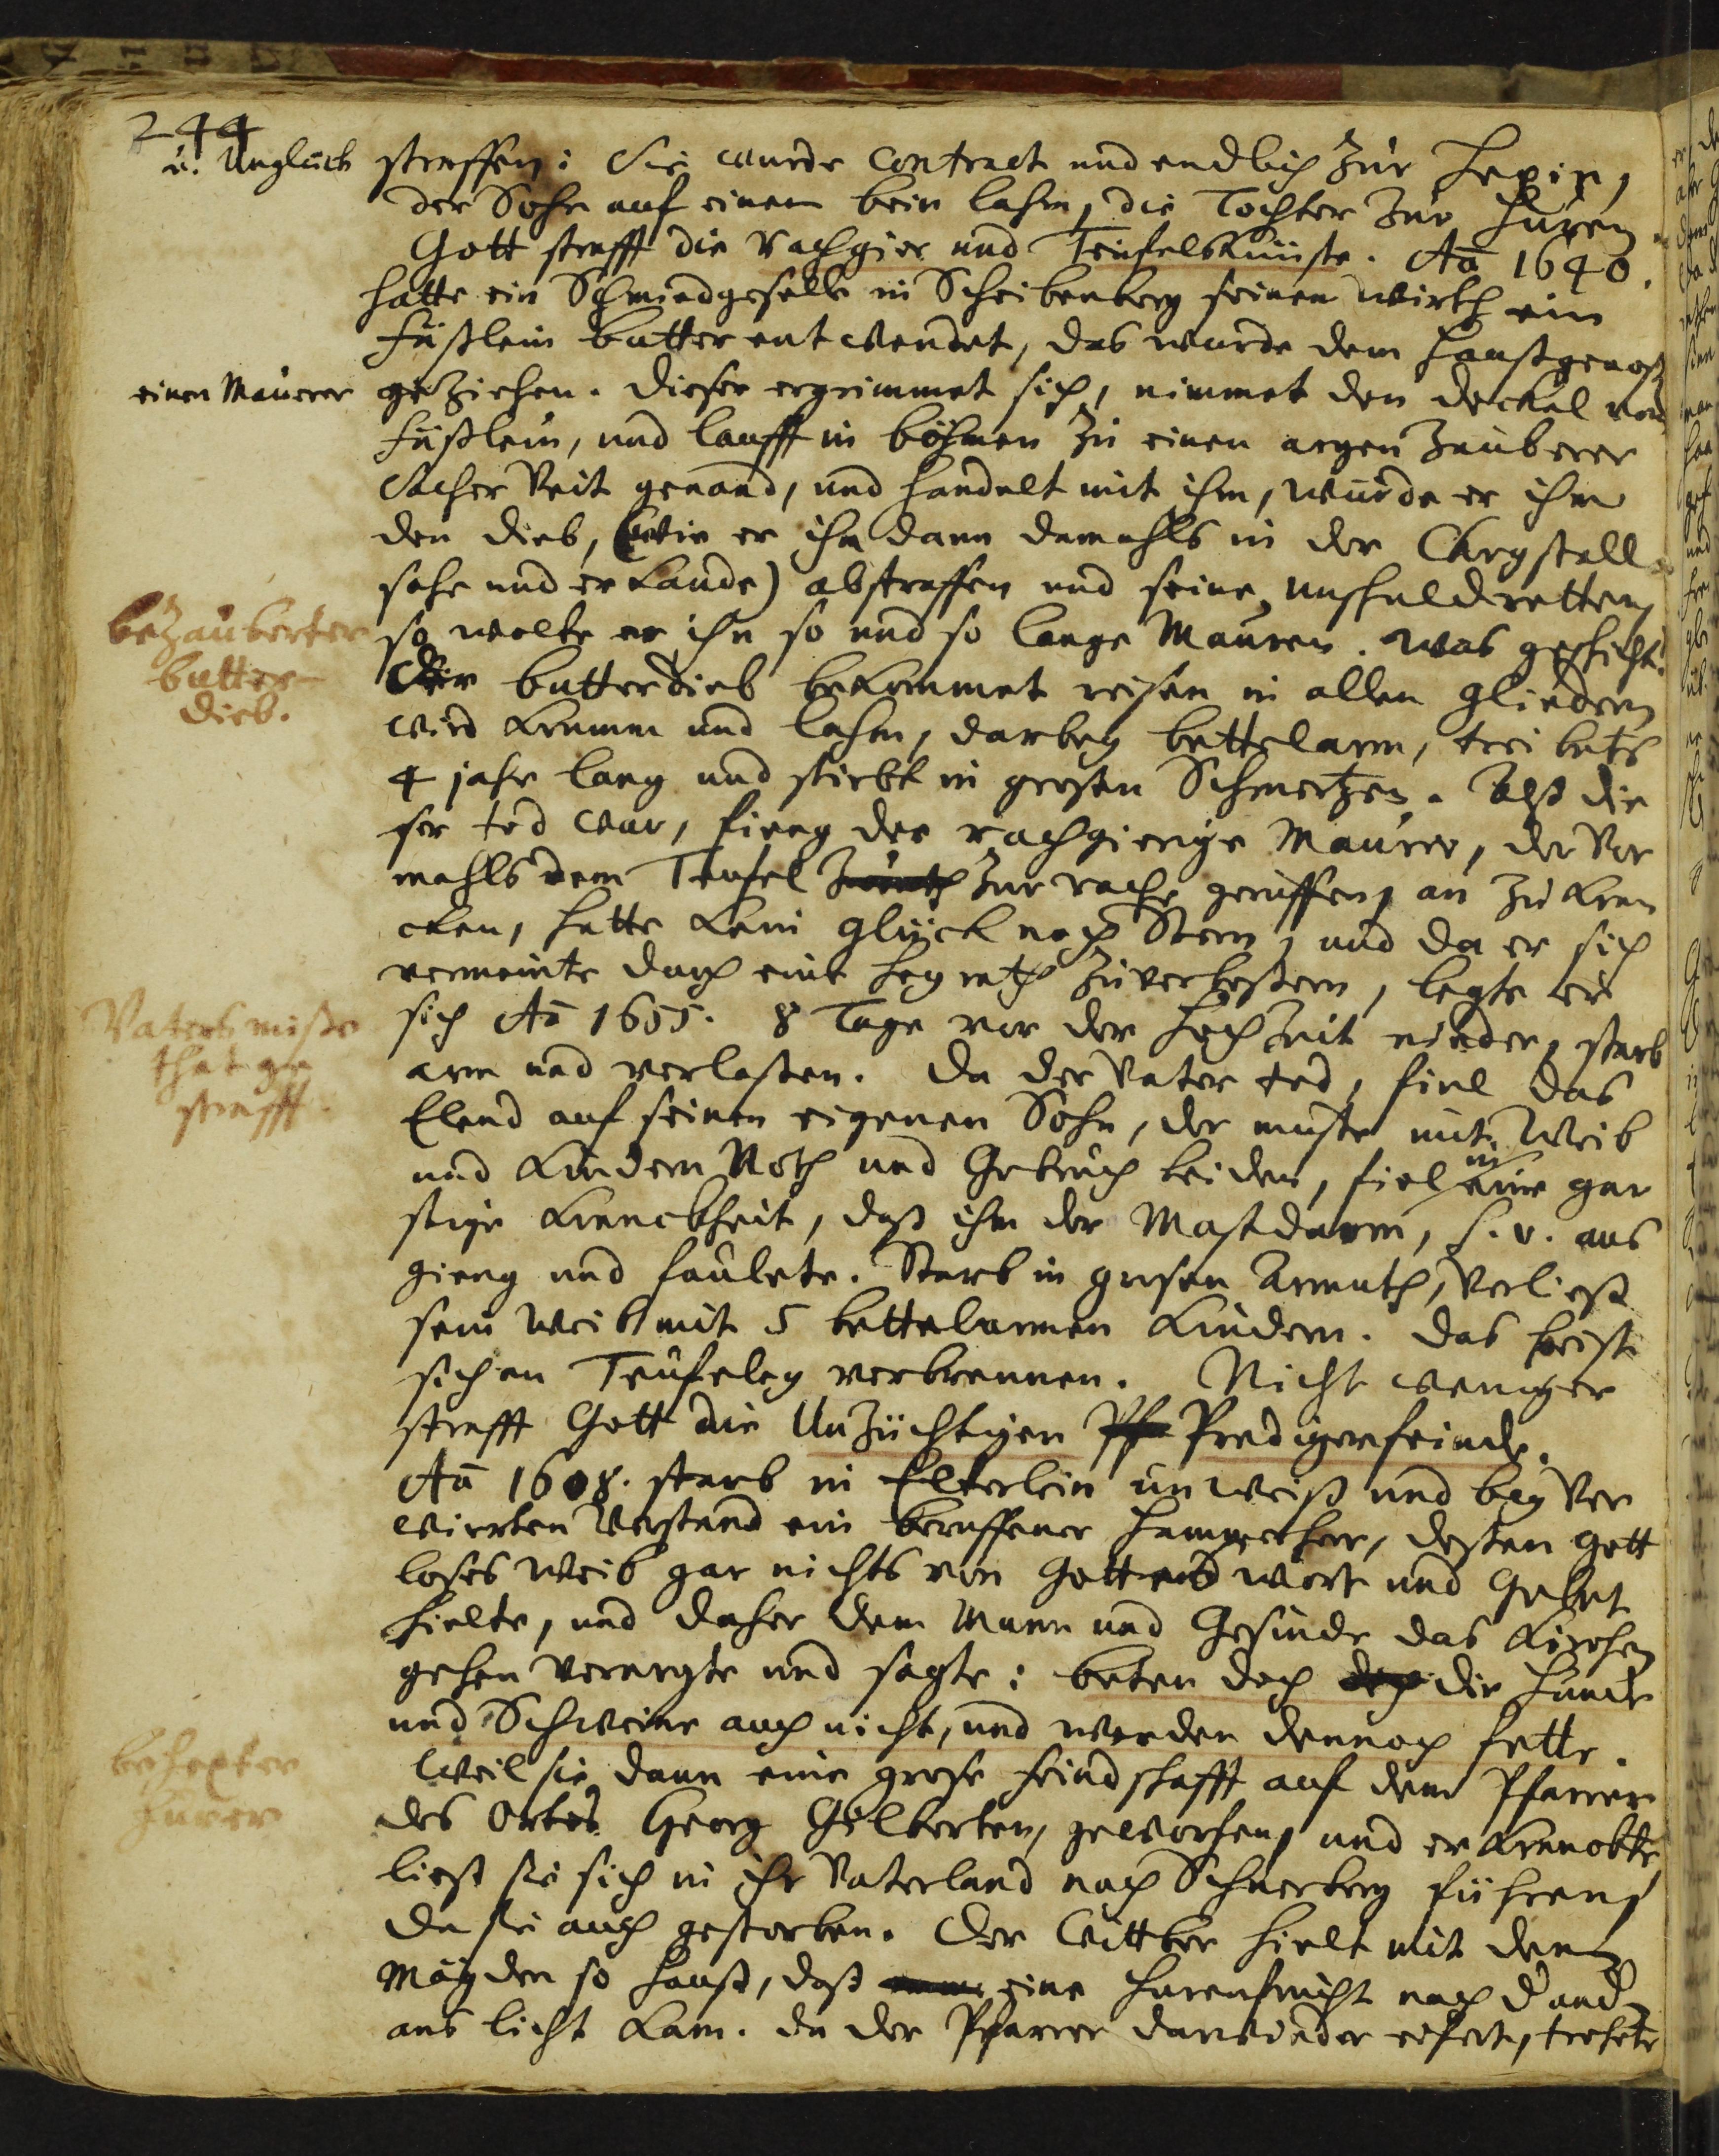 244
u. Unglück straffen: Sie wurde contract und endlich zur Hexin,
der Sohn auf einem bein lahm, die Tochter zur Huren.
Gott strafft die Rachgier und Teufelskünste. Aō 1640.
hatte ein Schmiedgeselle in Scheibenberg seinen Wirth ein
Fäßlein butter entwendet, das wurde dem Haußgenoß
einen Mäurer geziehen. Dieser ergrimmet sich, nimmet den deckel vom
Fäßlein, und laufft in böhmen zu einen argen Zäuberer
Sacher Veit genand, und handelt mit ihm, würde er ihm
den dieb, (wie er ihn dann damahls in der Chrystall
sahe und erkande) abstraffen und seine unschuld retten,
bezauberter
butter-
dieb.
so wolte er ihn so und so lange Mauren. Was geschicht!
Der butterdieb bekommet reisen in allen gliedern
wird krumm und lahm, darbey bettelarm, treibets
4 jahr lang und stirbt in grosen Schmertzen. Alß die
ser tod war, fieng der rachgierige Maurer, der vor
mahls dem Teufel zur rache geruffen, an zu kran
cken, hatte kein glück noch Stern, und da er sich
vermeinte durch eine heyrath zuverbeßern, legte er
Vaters misse
that ge
strafft.
sich Aō 1655. 8 Tage vor der hochzeit nieder, starb
arm und verlaßen. Da der Vater tod, fiel das
Elend auf seinen eigenen Sohn, der muste mit Weib
und Kindern Noth und Gebruch leiden, fiel in eine gar
stige Kranckheit, daß ihm der Mastdarm, s. v. aus
gieng und faulete. Starb in grosen Armuth, verließ
sein Weib mit 5 bettelarmen Kindern. Das heist
sich an Teufeley verbrennen. Nicht weniger
strafft Gott die Unzüchtigen Predigerfeinde.
Aō 1608. starb in Elterlein unweiß und bey ver
wirrten Verstand ein beruffener Hammerherr, deßen gott
loses Weib gar nichts von Gottes wort und Gebet
hielte, und daher dem Mann und Gesinde das Kirchen
gehen verargte und sagte: beten doch die Hunde
und Schweine auch nicht, und werden dennoch fette.
behexter
Hurer
Weil sie dann eine grose feindschafft auf dem Pfarrer
des Ortes Georg Gilberten, geworfen, und erkranckte,
ließ sie sich in ihr Vaterland nach Schneeberg führen,
da sie auch gestorben. Der Wittber hielt mit den
Mägden so hauß, daß eine Hurenfrucht nach d'and
ans licht kam. da der Pfarrer darwieder eifert,